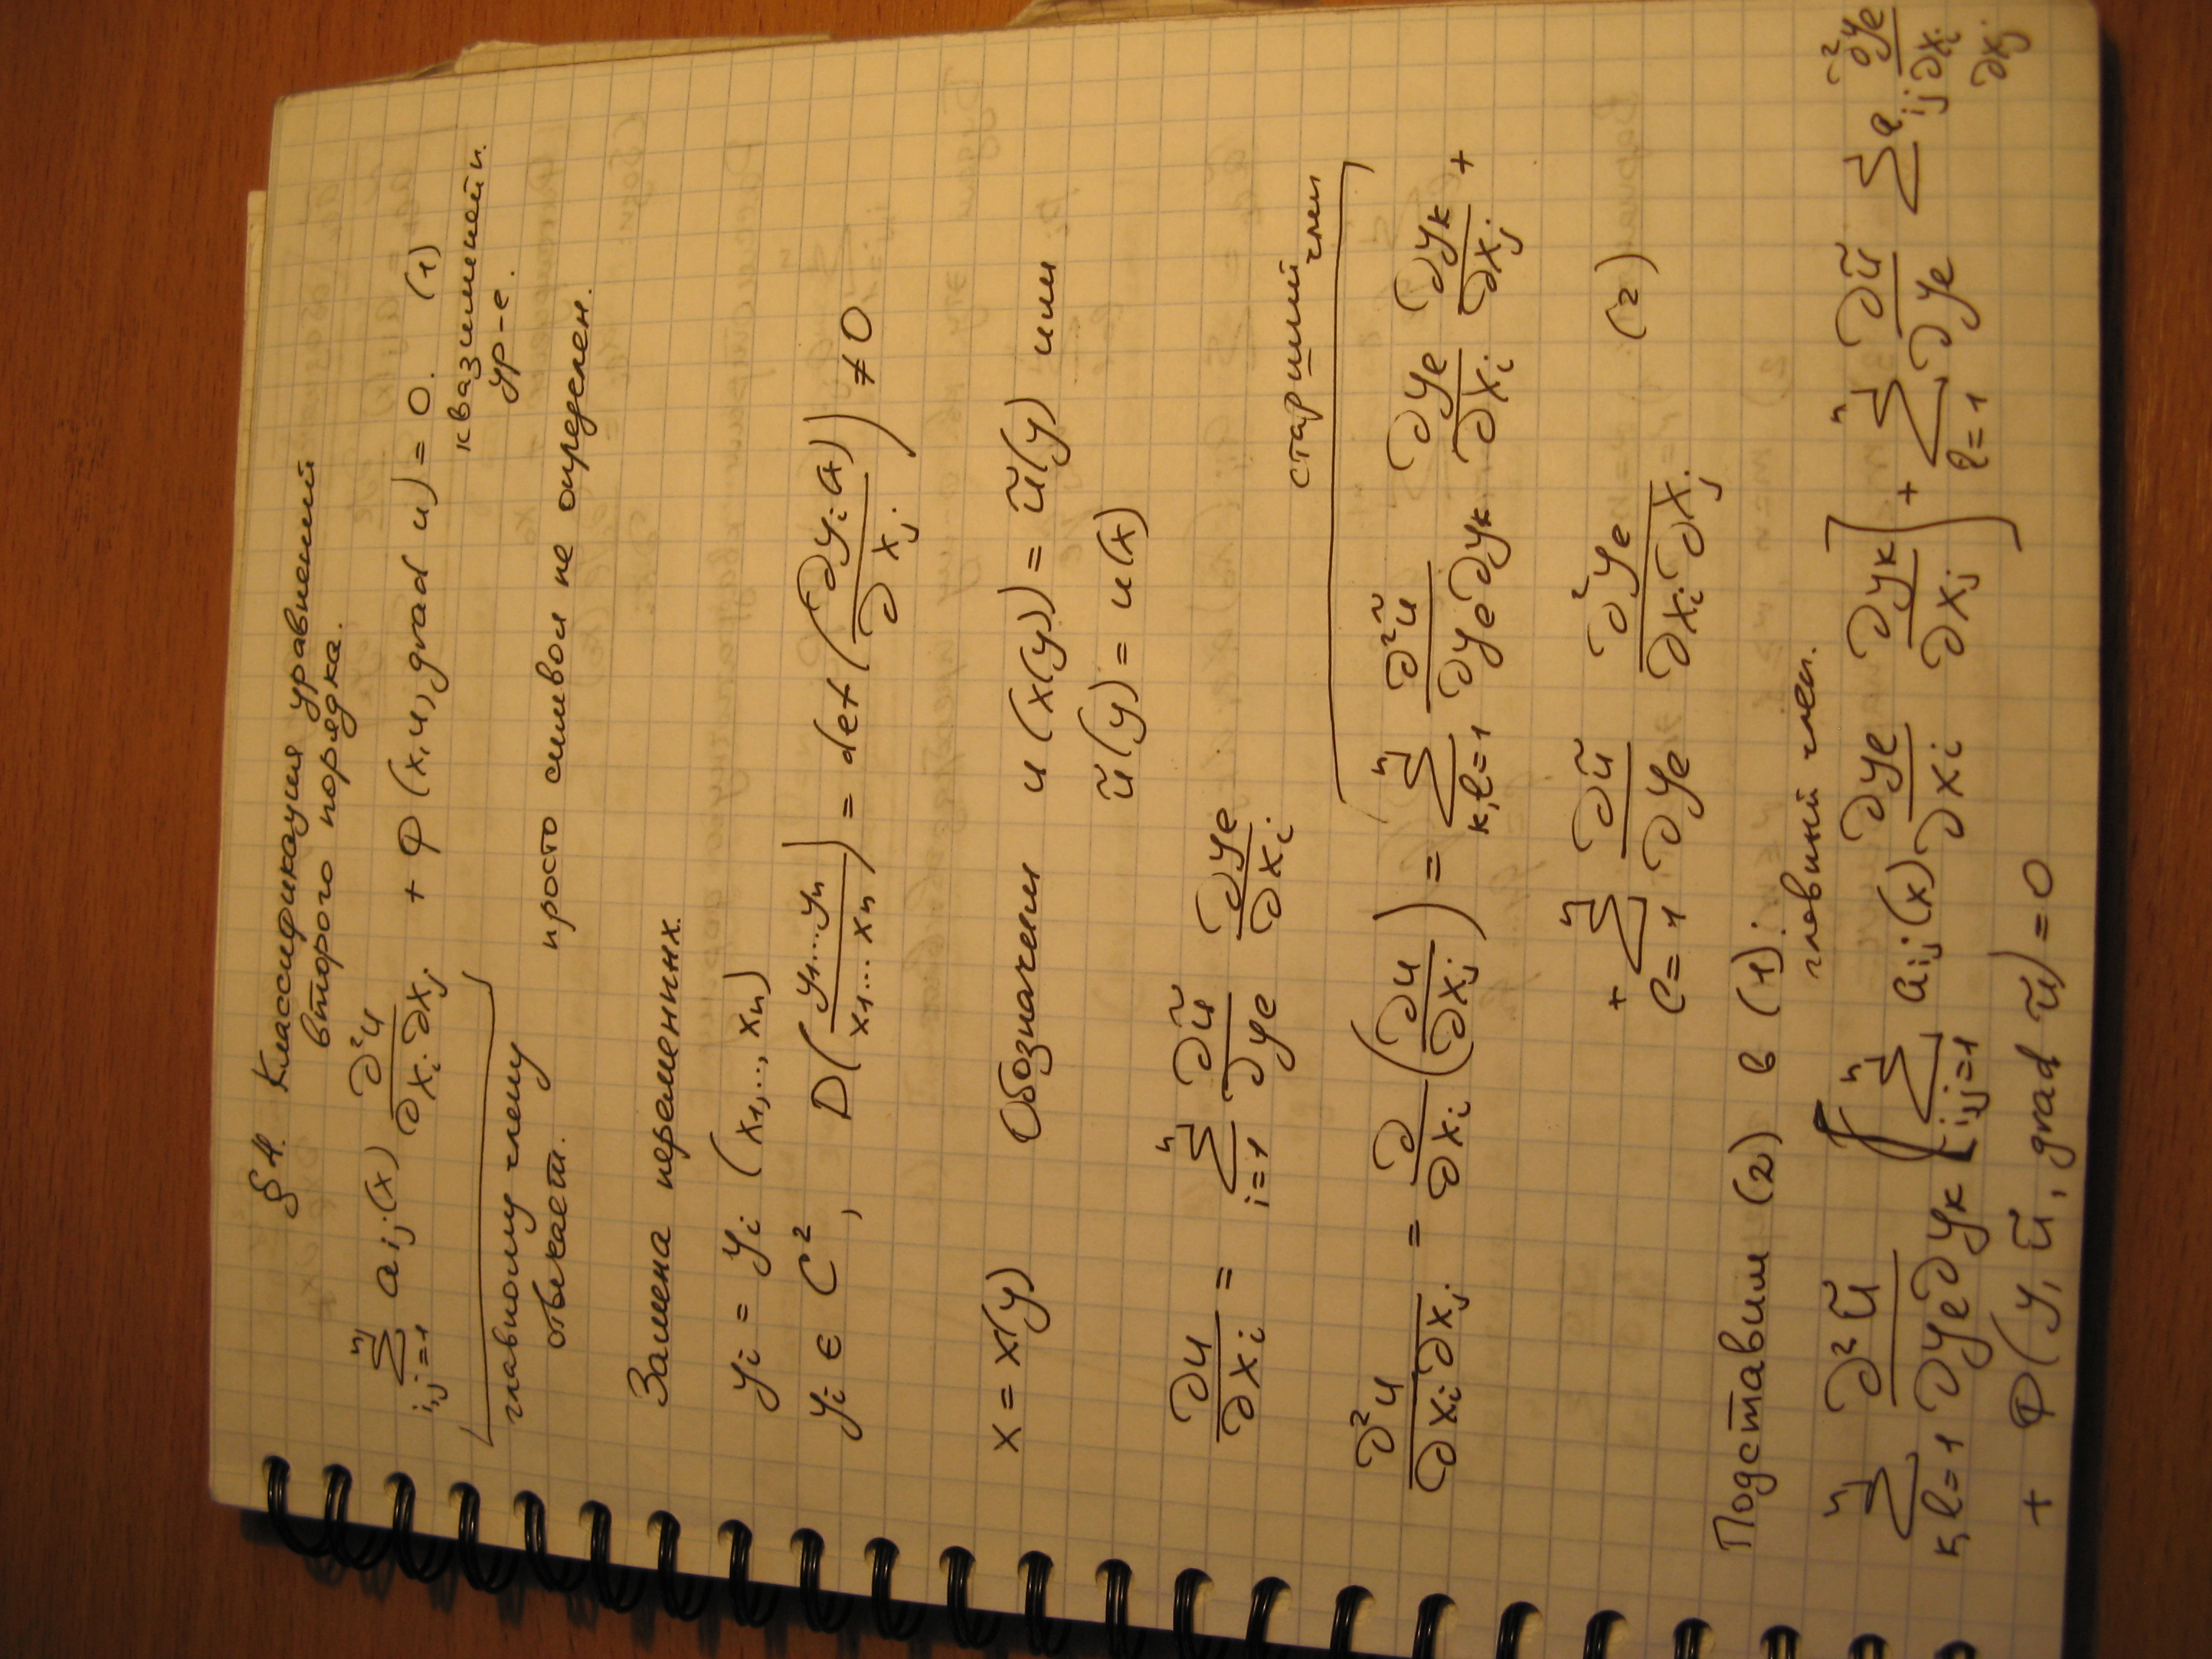 §4. Классификация уравнений
второго порядка.
∑_{i,j=1}^{n} a_{ij}(x) ∂²u/∂x_i∂x_j + Φ(x,u,grad u) = 0. (1)
квазилинейн.
ур-е.
главному члену
отвекает.
просто символ не определен.
Замена переменных.
y_i = y_i (x_1,..., x_n)
y_i ∈ C², D(y_1...y_n / x_1...x_n) = det(∂y_i(x)/∂x_j) ≠ 0
x = x(y) Обозначем u(x(y)) = ũ(y) или
ũ(y) = u(x)
∂u/∂x_i = ∑_{i=1}^{n} ∂ũ/∂y_e ∂y_e/∂x_i
старший член
∂²u/∂x_i∂x_j = ∂/∂x_i (∂u/∂x_j) = ∑_{k,l=1}^{n} ∂²ũ/∂y_e∂y_k ∂y_e/∂x_i ∂y_k/∂x_j +
+ ∑_{e=1}^{n} ∂ũ/∂y_e ∂²y_e/∂x_i∂x_j (2)
Подставим (2) в (1):
главний член.
∑_{k,l=1}^{n} ∂²ũ/∂y_e∂y_k [∑_{i,j=1}^{n} a_{ij}(x) ∂y_e/∂x_i ∂y_k/∂x_j] + ∑_{l=1}^{n} ∂ũ/∂y_e ∑ a_{ij} ∂²y_e/∂x_i∂x_j
+ Φ(y, ũ, grad ũ) = 0